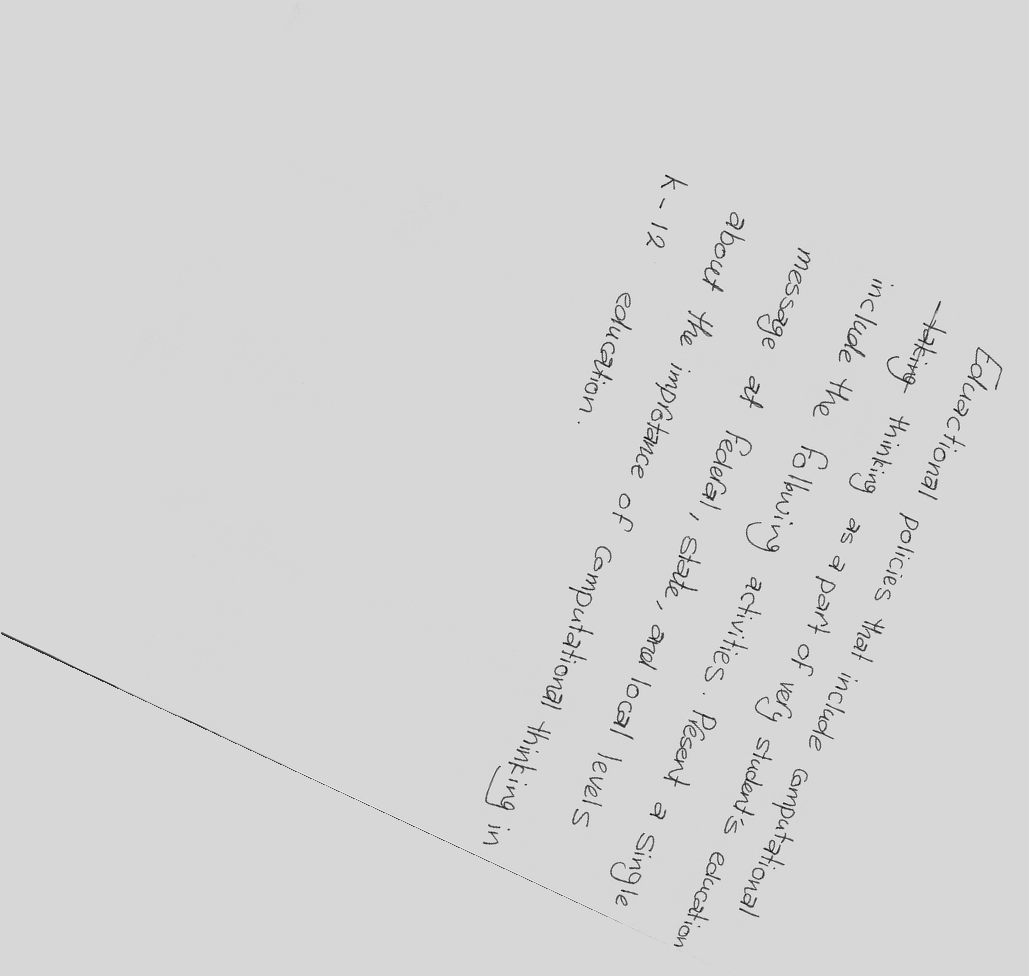 Eduactional policies that include computational
taking thinking as a part of very student's education
include the following activities. Present a single
message at federal, state, and local levels
about the improtance of computational thinking in
K-12 education.